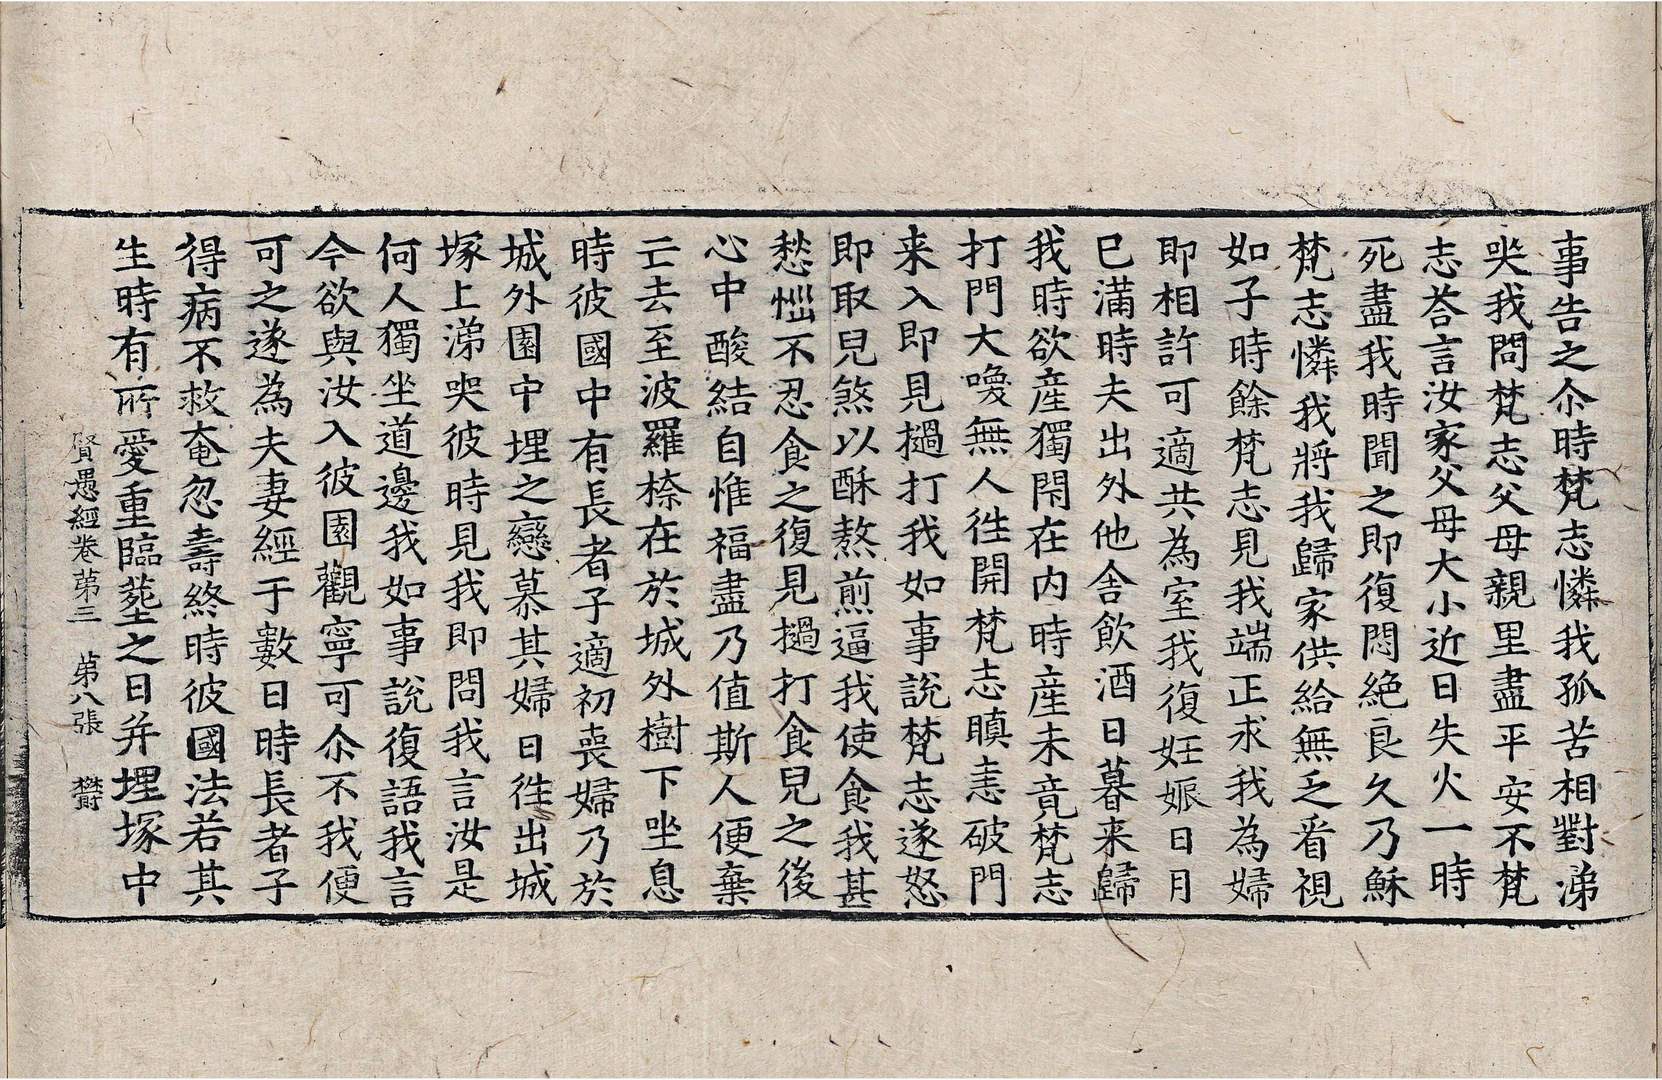 事告之尒時梵志憐我孤苦相對涕
哭我問梵志父母親里盡平安不梵
志荅言汝家父母大小近日失火一時
死盡我時聞之即復悶絶良久乃穌
梵志憐我將我歸家供給無乏看視
如子時餘梵志見我端正求我為婦
即相許可適共為室我復妊娠日月
已滿時夫出外他舍飲酒日暮来歸
我時欲産獨閇在內時産未竟梵志
打門大喚無人徃開梵志瞋恚破門
来入即見撾打我如事說梵志遂怒
即取兒煞以酥熬煎逼我使食我甚
愁惱不忍食之復見撾打食兒之後
心中酸結自惟福盡乃值斯人便棄
亡去至波羅㮈在於城外樹下坐息
時彼國中有長者子適初喪婦乃於
城外園中埋之戀慕其婦日徃出城
塚上涕哭彼時見我即問我言汝是
何人獨坐道邊我如事說復語我言
今欲與汝入彼園觀寧可尒不我便
可之遂為夫妻經于數日時長者子
得病不救奄忽壽終時彼國法若其
生時有所愛重臨塟之日并埋塚中
賢愚經卷第三 第八張 欝